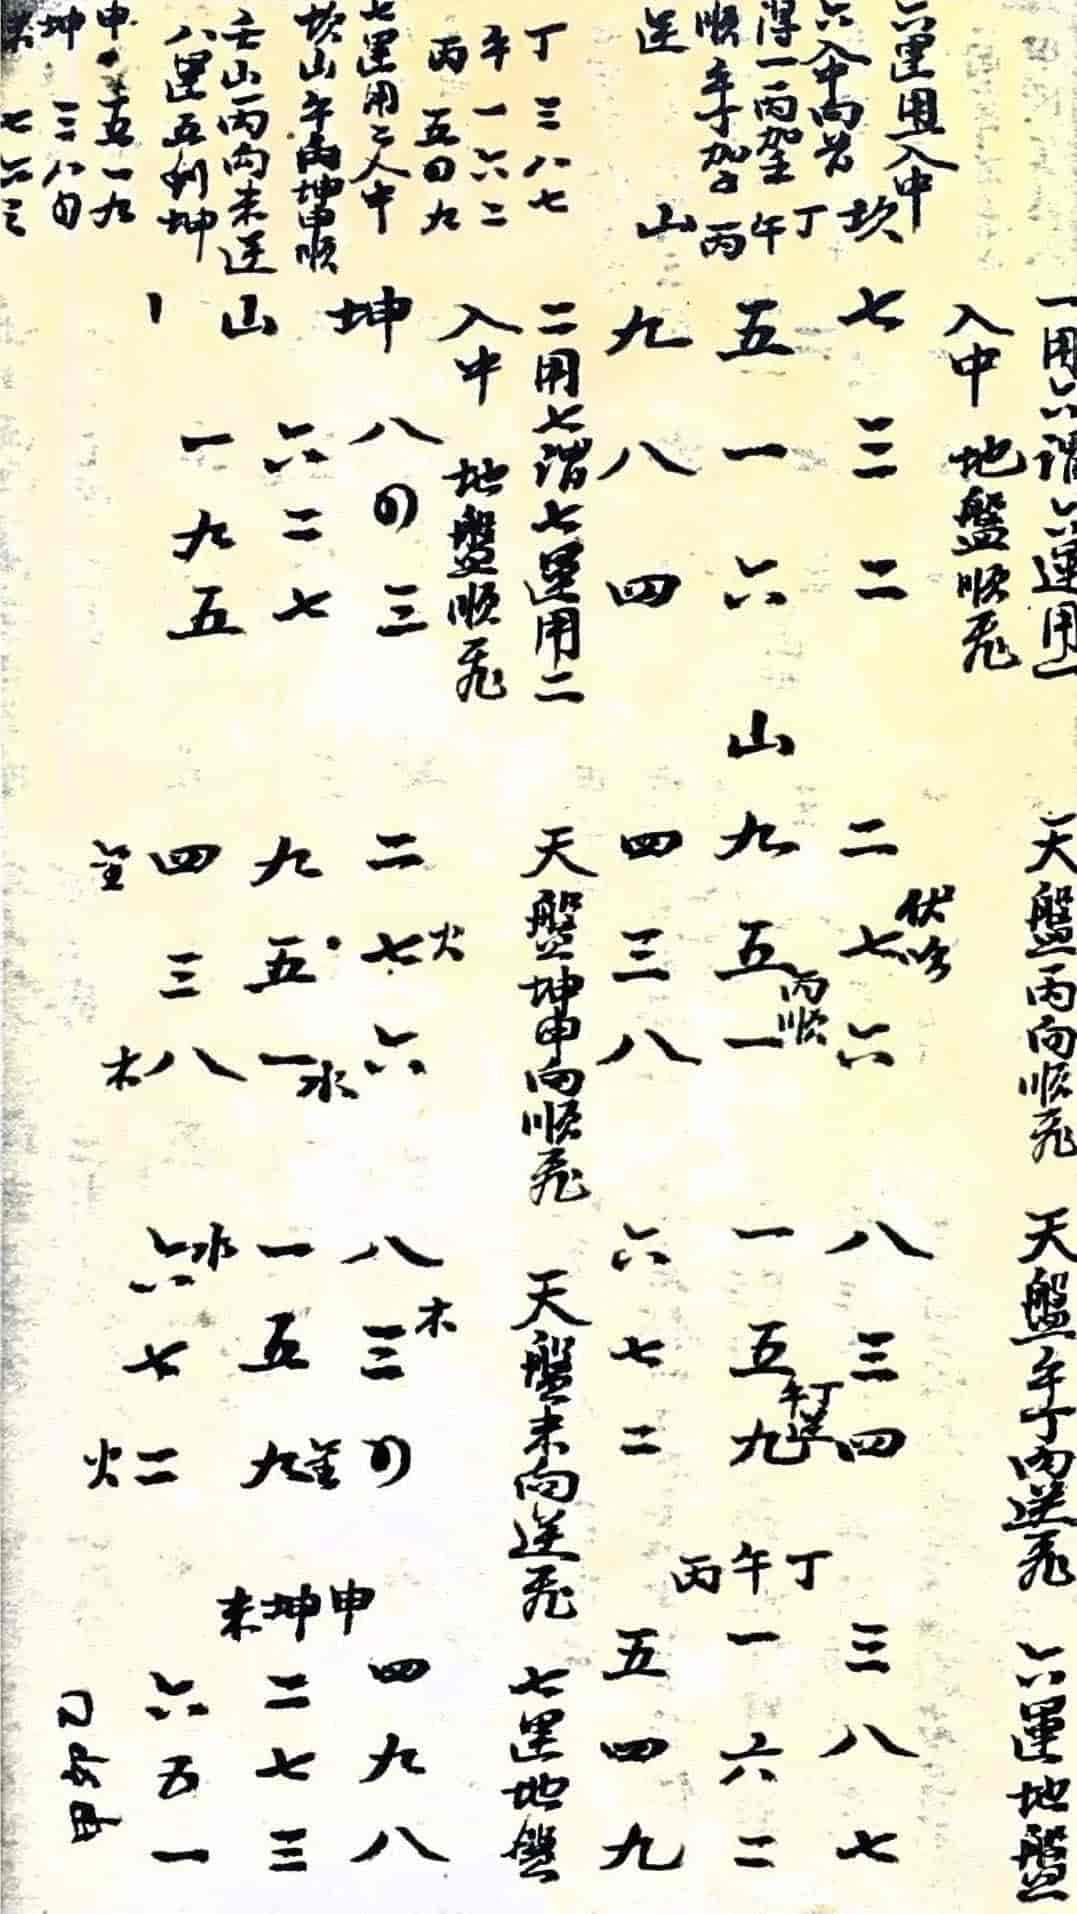 六運用入中
六入中向首
順
逆
坎
山
丁 三八七
午 一六二
丙 五四九
丁
午
丙
七運用二入中
八運五到坤
申 五一九
坤 三八四
未 七六二
一用六謂六運用一
入中 地盤順飛
七 三 二
五 一 六
九 八 四
二用七謂七運用二
入中 地盤順飛
坤
山
八 四 三
六 二 七
一 九 五
天盤丙向順飛
山
二 七 六
伏吟
九 五 一
丙順
四 三 八
天盤坤申向順飛
二 七 六
火
九 五 一
水
四 三 八
金
木
天盤午丁向逆飛
八 三 四
一 五 九
午丁逆
六 七 二
天盤未向逆飛
八 三 四
木
一 五 九
金
六 七 二
水
火
六運地盤
丙午丁
三 八 七
一 六 二
五 四 九
七運地盤
未坤申
四 九 八
二 七 三
六 五 一